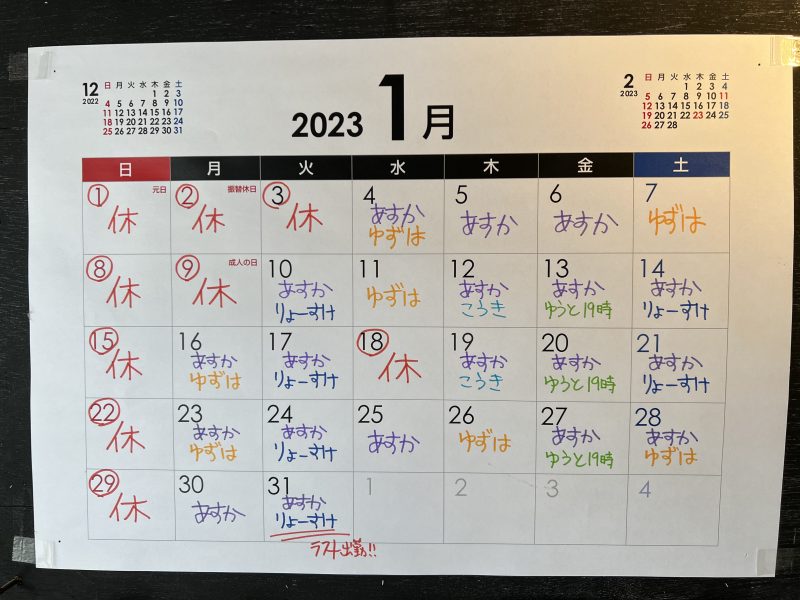 12
2022
日 月 火 水 木 金 土
1 2 3
4 5 6 7 8 9 10
11 12 13 14 15 16 17
18 19 20 21 22 23 24
25 26 27 28 29 30 31
2023 1月
2
2023
日 月 火 水 木 金 土
1 2 3 4
5 6 7 8 9 10 11
12 13 14 15 16 17 18
19 20 21 22 23 24 25
26 27 28
日 月 火 水 木 金 土
1 元日
休
2 振替休日
休
3
休
4
あすか
ゆずは
5
あすか
6
あすか
7
ゆずは
8
休
9 成人の日
休
10
あすか
りょーすけ
11
ゆずは
12
あすか
こうき
13
あすか
ゆうと19時
14
あすか
りょーすけ
15
休
16
あすか
ゆずは
17
あすか
りょーすけ
18
休
19
あすか
こうき
20
あすか
ゆうと19時
21
あすか
りょーすけ
22
休
23
あすか
ゆずは
24
あすか
りょーすけ
25
あすか
26
ゆずは
27
あすか
ゆうと19時
28
あすか
ゆずは
29
休
30
あすか
31
あすか
りょーすけ
1
2
3
4
ラスト出勤!!